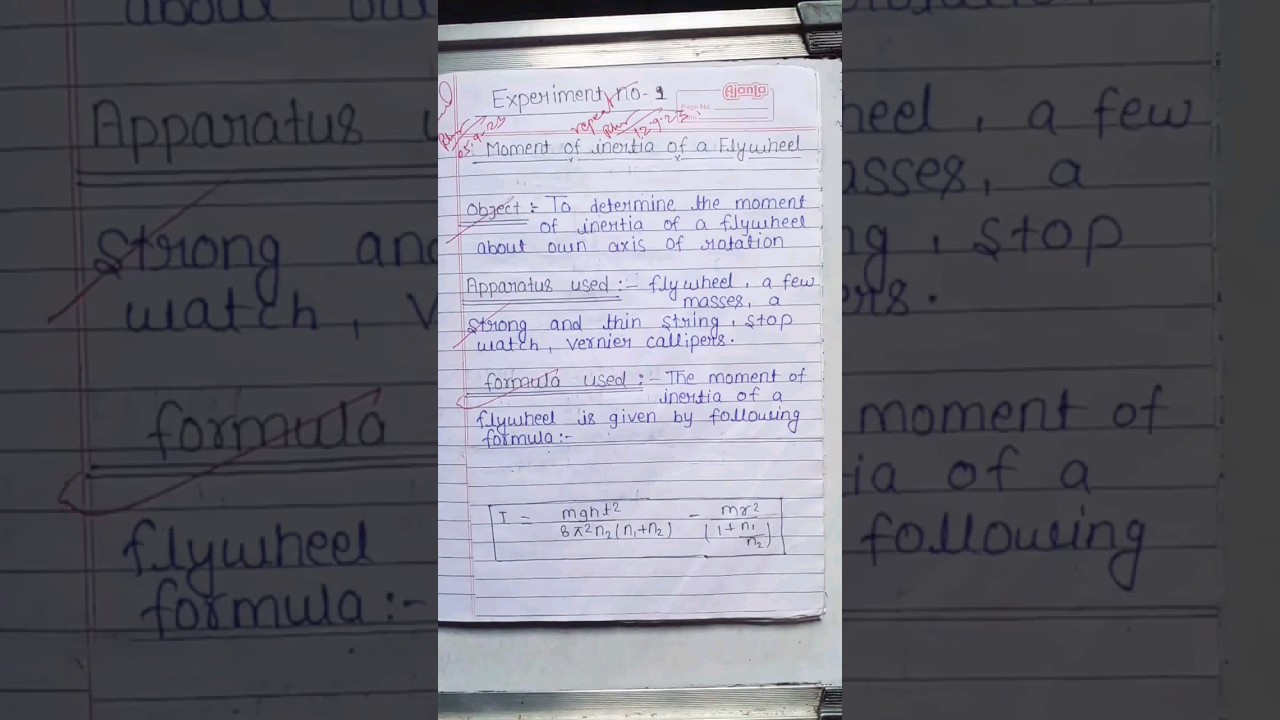 Experiment no- 1
Ajanta
Page No.
repeat
05.9.25
12.9.25
Moment of inertia of a Flywheel
Object :- To determine the moment
of inertia of a flywheel
about own axis of rotation
Apparatus used :- flywheel, a few
masses, a
strong and thin string, stop
watch, vernier callipers.
formula used :- The moment of
inertia of a
flywheel is given by following
formula:-
I = mght² / 8π²n₂(n₁+n₂) - mr² / (1+ n₁/n₂)